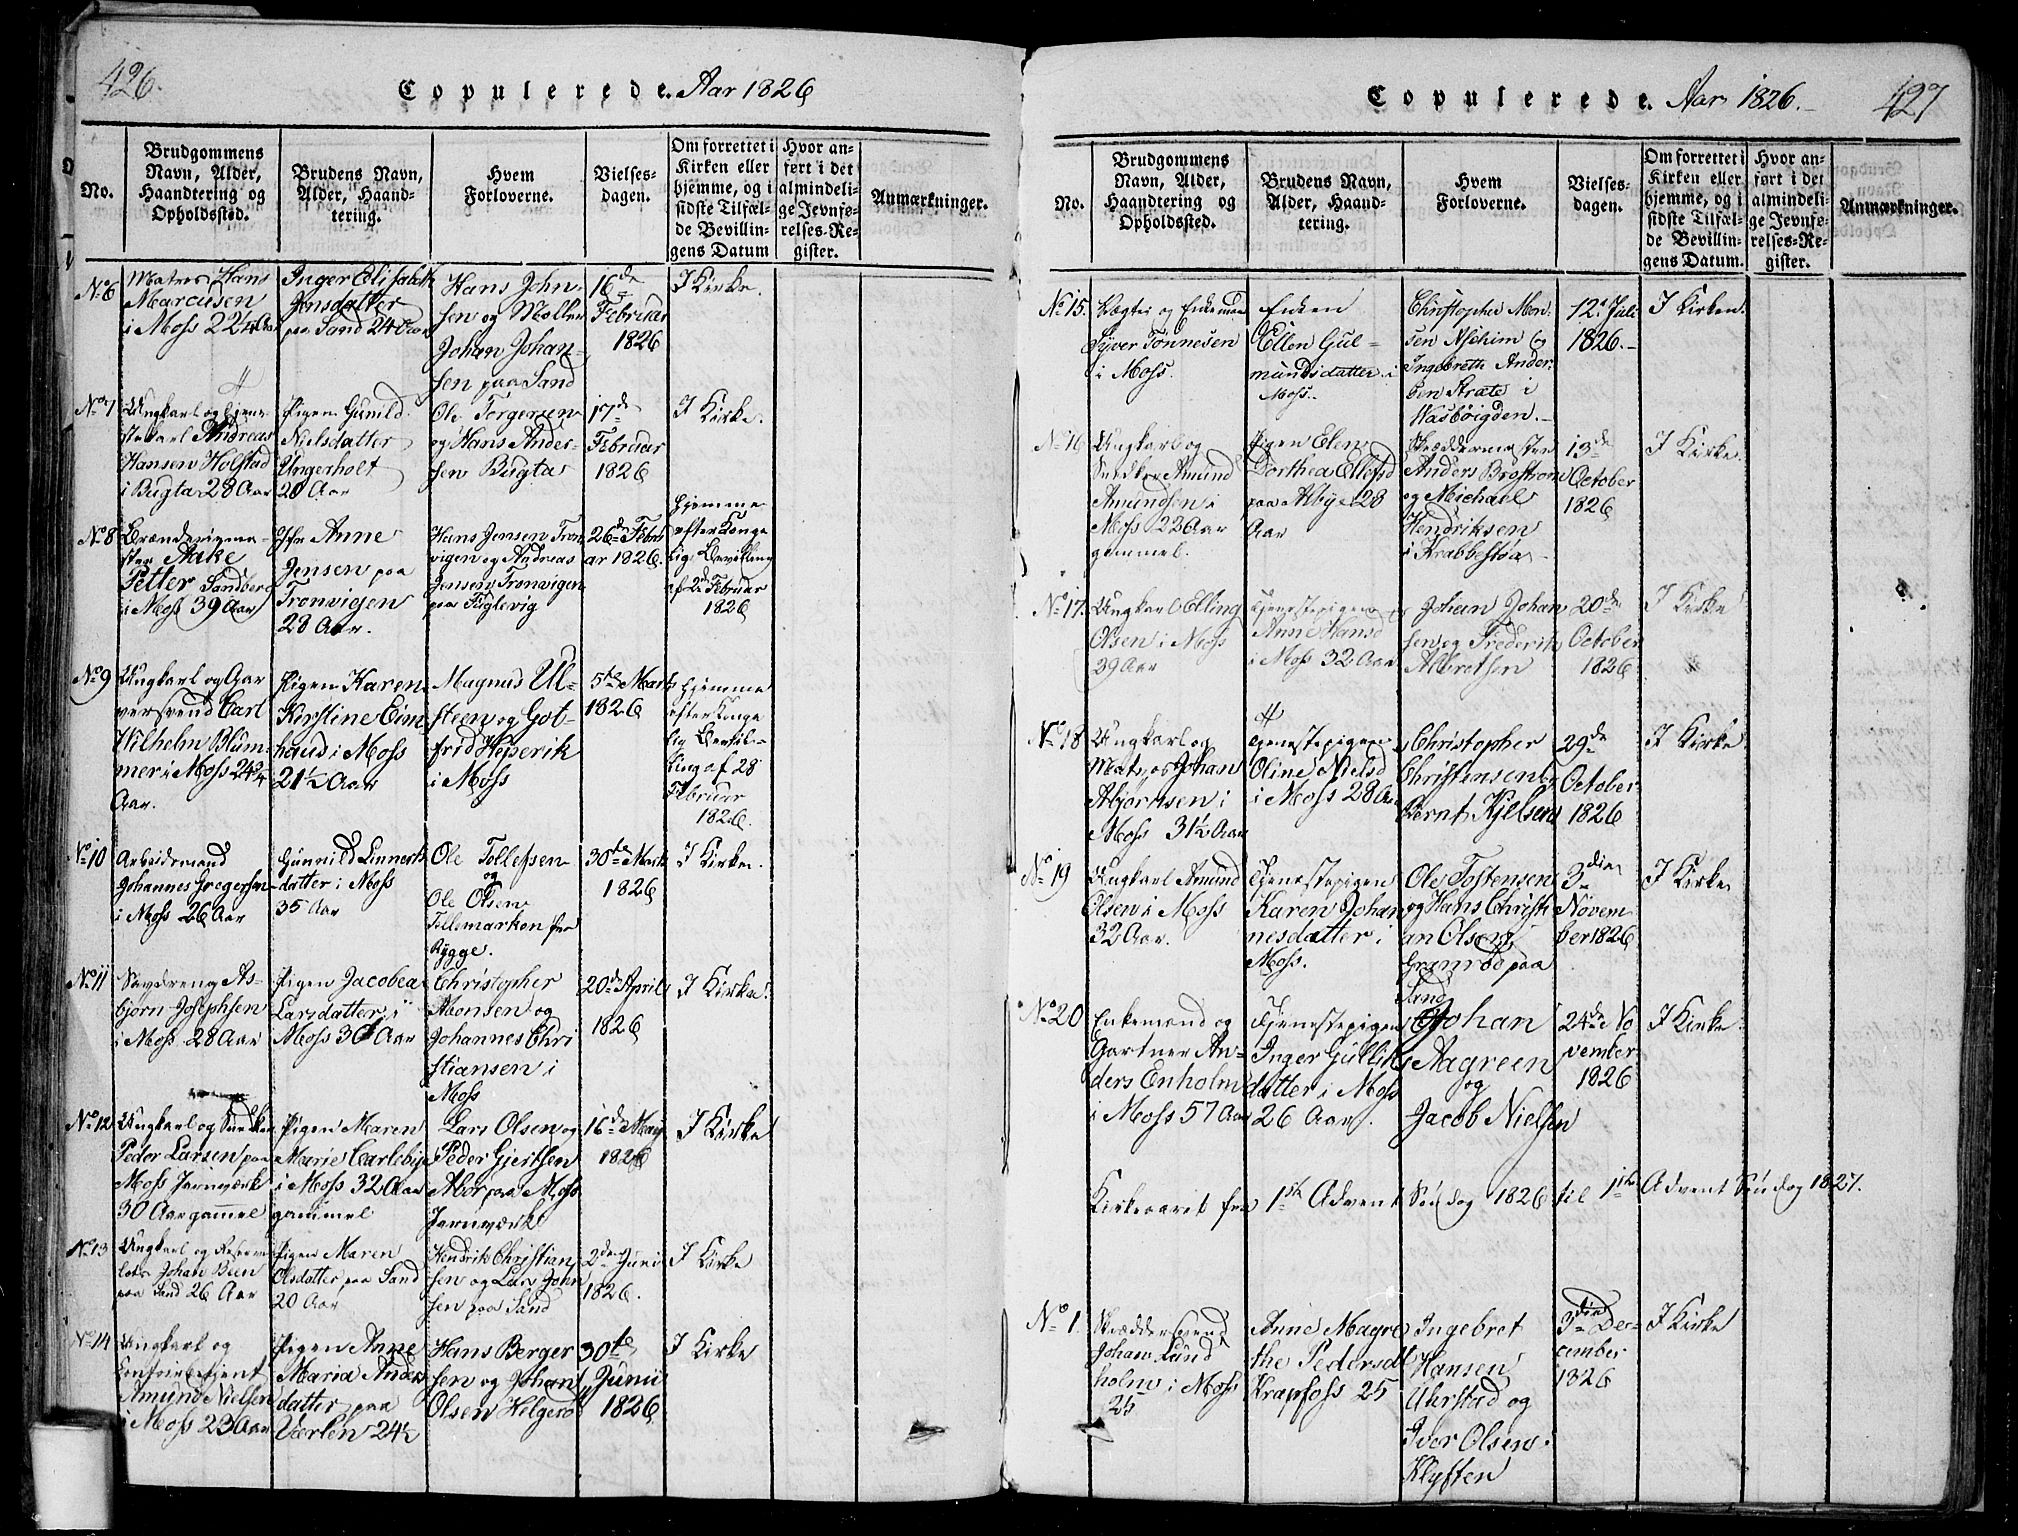 426.
Copulerede. Aar 1826
No.
Brudgommens
Navn, Alder,
Haandtering og
Opholdssted.
Brudens Navn,
Alder, Haand-
tering.
Hvem
Forloverne.
Vielses-
dagen.
Om forrettet i
Kirken eller
hjemme, og i
sidste Tilfæl-
de Bevillin-
gens Datum
Hvor an-
ført i det
almindeli-
ge Jevnfø-
relses-Re-
gister.
Anmærkninger.
No 6
Matros Hans
Marcusen
i Moss 22 1/4 Aar
Inger Elisabeth
Jensdatter
paa Sand 24 Aar
Hans John-
sen og Moller
Johan Johan-
sen paa Sand
16de
Februar
1826
I Kirke.
No 7
Ungkarl og tjene-
stekarl Andreas
Hansen Holstad
i Bugta 28 Aar
Pigen Gunild
Nielsdatter
Ungerholt
20 Aar
Ole Torgersen
og Hans Ander-
sen Bugta
17de
Februar
1826
I Kirke.
No 8
Brænderimes-
ster Aake
Petter Sandberg
i Moss 39 Aar
Jfr Anne
Jensen paa
Tronvigen
28 Aar.
Hans Jensen Tron-
vigen og Andreas
Jensen Tronvigen
paa Fuglevig
26de Febru
ar 1826.
Hjemme
efter Konge
lig Bevilling
af 2de Februar
1826
No 9
Ungkarl og Gar
versvend Carl
Wilhelm Blum-
mer i Moss 24 3/4
Aar.
Pigen Karen
Kirstine Eim
haus i Moss
21 1/2 Aar
Magnus Ul-
steen og Got-
frid Hejserik
i Moss
5te Marts
1826
Hjemme
efter Konge
lig Bevil-
ling af 28
Februar
1826.
No 10
Arbeidsmand
Johannes Gregersen
i Moss 26 Aar
Gunnild Linnerts
datter i Moss
35 Aar
Ole Tollefsen
og
Ole Olsen
Tellemarken fra
Rygge.
30te Marts
1826
I Kirke.
No 11
Saugdreng As-
bjørn Josephsen
i Moss 28 Aar
Pigen Jacobea
Larsdatter i
Moss 30 Aar
Christopher
Monsen og
Johannes Chri
stiansen i
Moss
20de April
1826
I Kirke.
No 12
Ungkarl og Snedker
Peder Larsen paa
Moss Jernværk
30 Aar gammel
Pigen Maren
Marie Carlebye
i Moss 32 Aar
gammel
Lars Olsen og
Peder Giertsen
Abor paa Moss
Jernværk
16de May
1826
I Kirke
No 13
Ungkarl og Reserve
lods Johan Been
paa Sand 26 Aar
Pigen Maren
Olsdatter paa Sand
20 Aar
Hendrik Christian
sen og Lars John
sen paa Sand
2de Juni
1826.
I Kirke
No 14
Ungkarl og
Amund Nielsen
i Moss 23 Aar
Pigen Anne
Maria Anders
datter paa
Værlen 24 1/2
Hans Berger
sen og Johan
Olsen Helgerø
30te
Junii
1826
I Kirke
Copulerede. Aar 1826.
427
No.
Brudgommens
Navn, Alder,
Haandtering og
Opholdssted.
Brudens Navn,
Alder, Haand-
tering.
Hvem
Forloverne.
Vielses-
dagen.
Om forrettet i
Kirken eller
hjemme, og i
sidste Tilfæl-
de Bevillin-
gens Datum.
Hvor an-
ført i det
almindeli-
ge Jevnfø-
relses-Re-
gister.
Anmærkninger.
No 15.
Vægter og Enkemand
Syver Tønnesen
i Moss.
Enken
Ellen Gul-
mundsdatter i
Moss.
Christopher Mon-
sen Aschim og
Ingebreth Ander-
sen Krate i
Wasbøigden.
12te Juli
1826.
I Kirken.
No 16
Ungkarl og
Snedker Amund
Amundsen i
Moss 23 Aar
gammel.
Pigen Elen
Dorthea Ellefsd
paa Albye 28
Aar
Skræddermester
Anders Brostrøm
og Michael
Hendriksen
i Krabbestøa
13de
October
1826
I Kirke.
No 17.
Ungkarl Elling
Olsen i Moss
39 Aar
Tjenestepigen
Anne Hansd
i Moss 32 Aar
Johan Johan
sen og Frederik
Albretsen
20de
October
1826
I Kirke
No 18
Ungkarl og
Matros Johan
Abjørnsen i
Moss 31 1/2 Aar
Tjenestepigen
Oline Nielsd
i Moss 28 Aar
Christopher
Christensen og
Bernt Kjelsen
29de
October
1826
I Kirke
No 19
Ungkarl Amund
Olsen i Moss
32 Aar.
Tjenestepigen
Karen Johan
nesdatter i
Moss.
Ole Tostensen
og Hans Christi
an Olsen
Grønrød paa
Sand
3die
Novem
ber 1826
I Kirke
No 20
Enkemand og
Gartner An-
ders Enholm
i Moss 57 Aar
Tjenestepigen
Inger Gulliks
datter i Moss
26 Aar.
Johan
Aagreen
og
Jacob Nielsen
24de No
vember
1826
I Kirke
Kirkeaaret fra 1ste Advent Søndag 1826 til 1ste Advent Søndag 1827.
No 1.
Skrædder Svend
Johan Lund
holm i Moss
25
Anne Magre
the Pedersdt
Krapfoss 25
Ingebret
Hansen
Uhrstad og
Iver Olsen
Klyften
3die De-
cember
1826
I Kirke